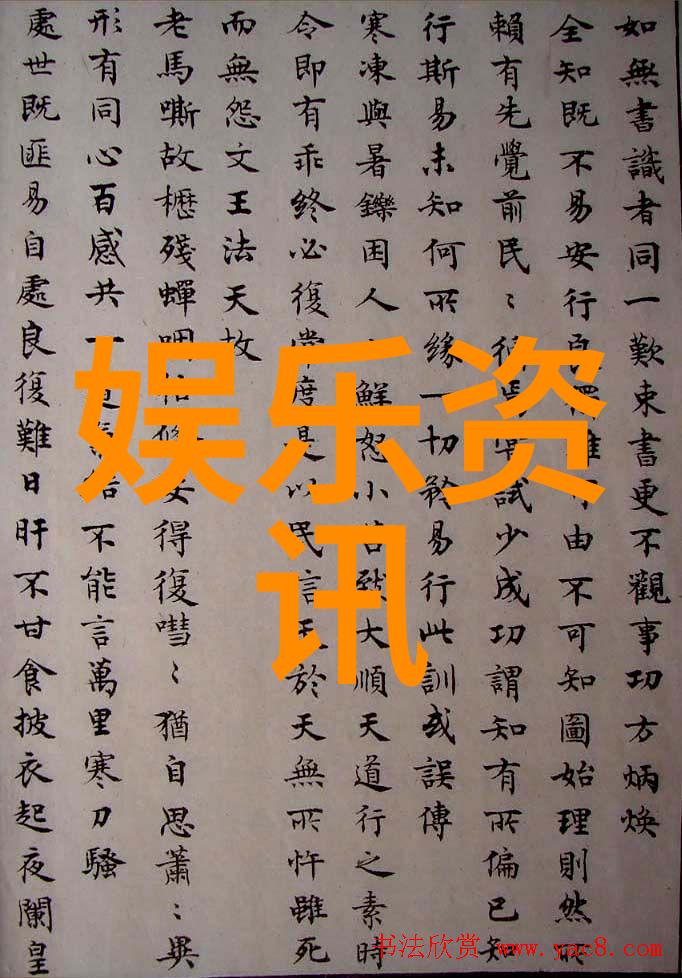 如無書識者同一歎束書更不觀事功方炳煥
全知既不易安行由不可知圖始理則然所
賴有先覺前民〻試少成功謂知有所偏已知
行斯易未知何所緣一切於易行此訓或誤傳
寒凍與暑鑠困人鮮怨小大順天道行之素時
令即有乖終必復常度是以民言於天無所忤雖死
而無怨文王法天故
老馬嘶故櫪殘蟬咽安得復嘒〻猶自思蕭〻異
形有同心百感共一不能言萬里寒刀騷
處世既匪易自處良復難日旰不甘食披衣起夜闌皇
娱乐资
讯
书法欣赏 www.yac8.com